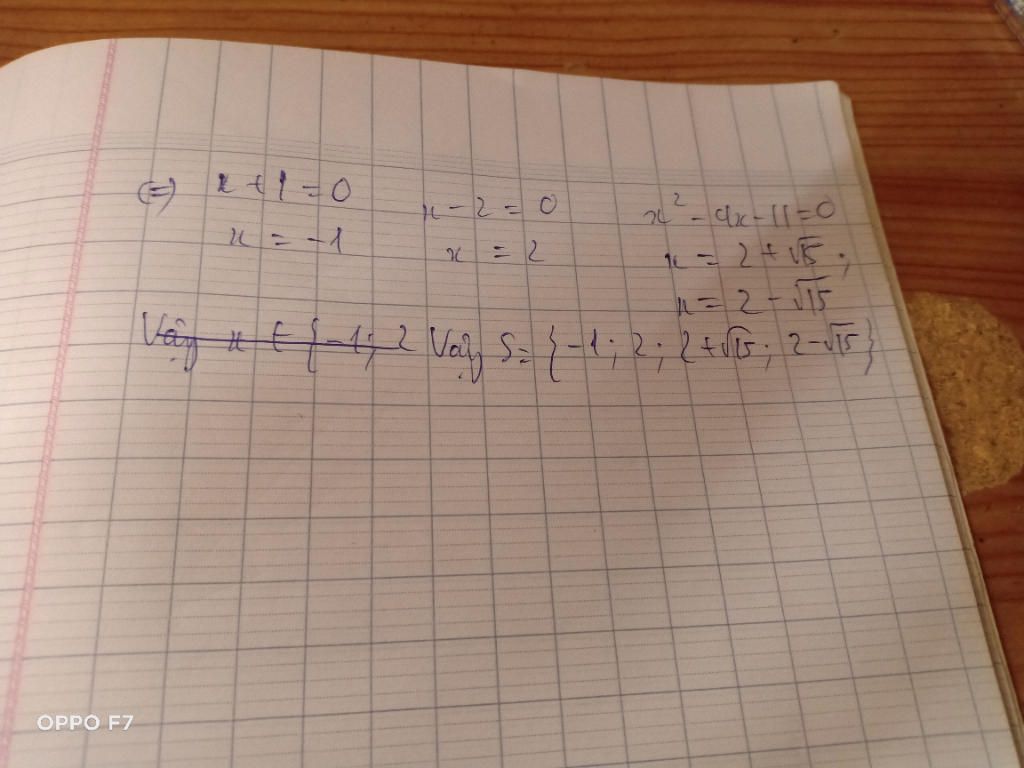 ⇔ x + 1 = 0 x - 2 = 0 x² - 4x - 11 = 0
x = -1 x = 2 x = 2 + √15 ;
x = 2 - √15
Vậy x ∈ {-1; 2 Vậy S = {-1; 2; 2+√15; 2-√15}
OPPO F7